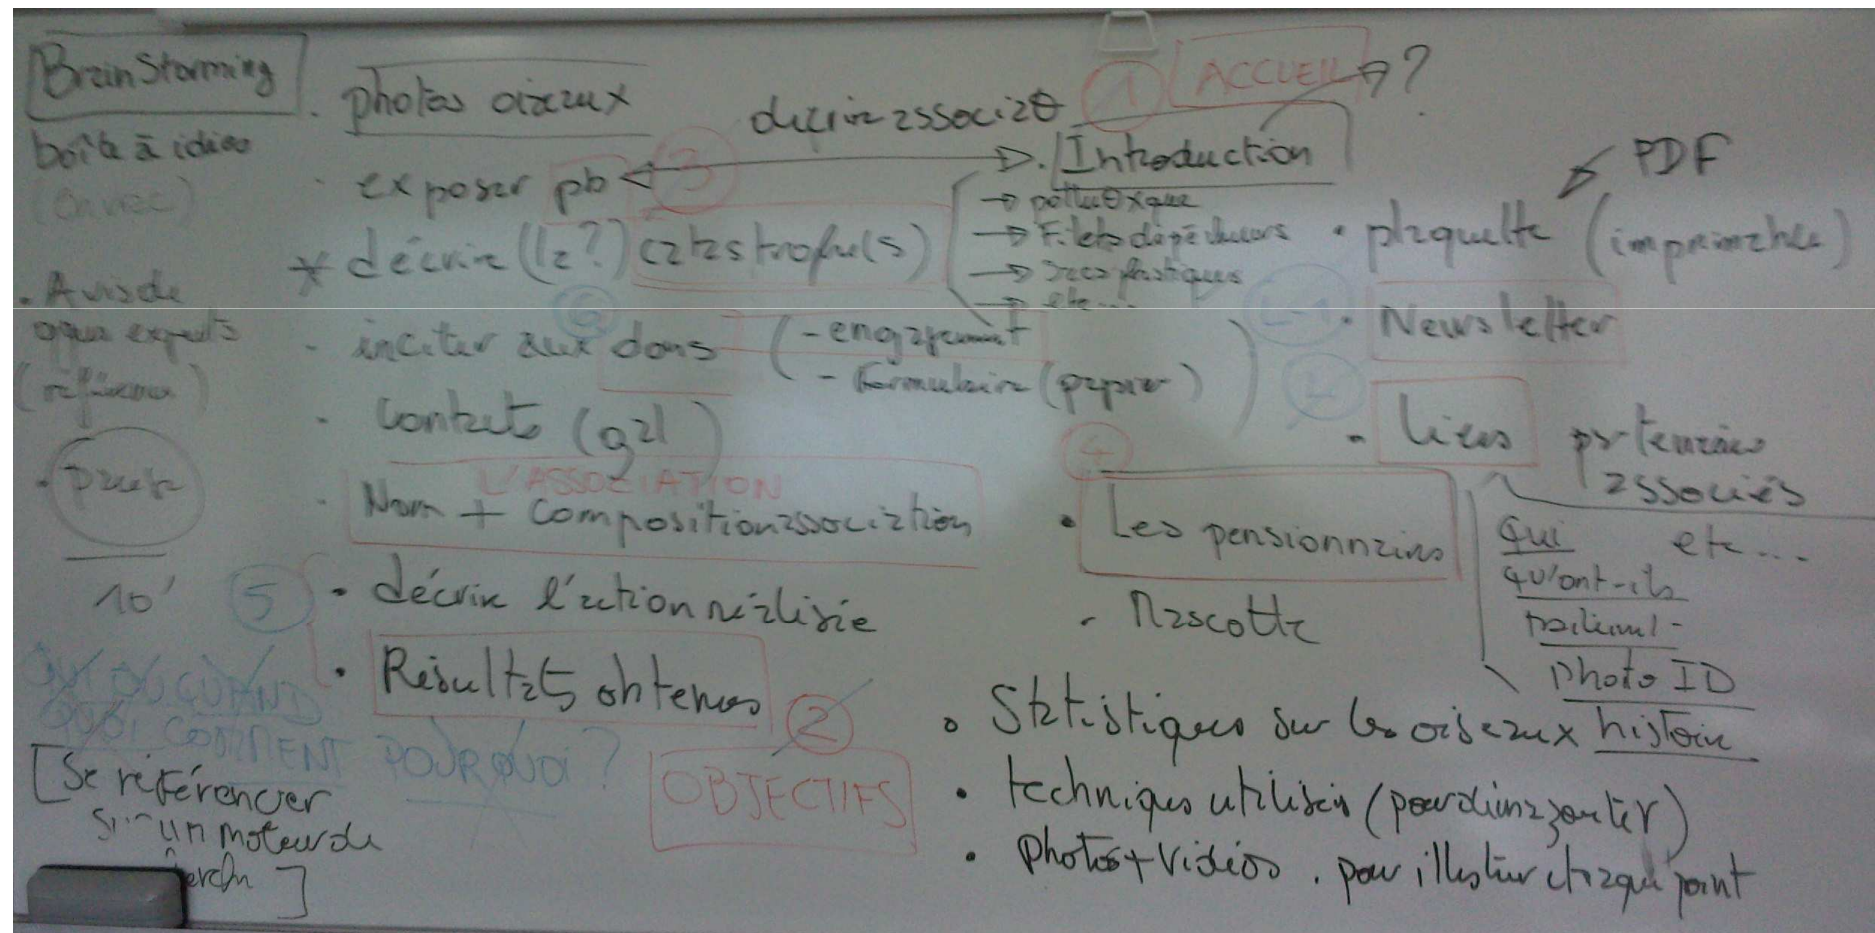 BrainStorming
boîte à idées
(en vrac)
. Avis de
qques experts
(référence)
10'
QUI OU QUAND
QUOI COMMENT POURQUOI ?
[Se référencer
sur un moteur de
]
. photos oiseaux
. exposer pb
3
* décrire (la?) catastrophe(s)
6
. inciter aux dons (- engagement
- formulaire (papier) )
. Contacts (gal)
L'ASSOCIATION
. Nom + composition association
5
. décrire l'action réalisée
. Résultats obtenus
2
OBJECTIFS
décrire associat°
1 ACCUEIL ?
. Introduction
→
→ Filets de pêcheurs
→ Sacs plastiques
→ etc...
PDF
. plaquette (imprimable)
. Newsletter
. Liens partenaires
associés
etc...
4
. Les pensionnaires
Qui
qu'ont-ils
photo ID
histoire
. Mascotte
. Statistiques sur les oiseaux
. techniques utilisées (pour démazouter)
. photos + vidéos . pour illustrer chaque point